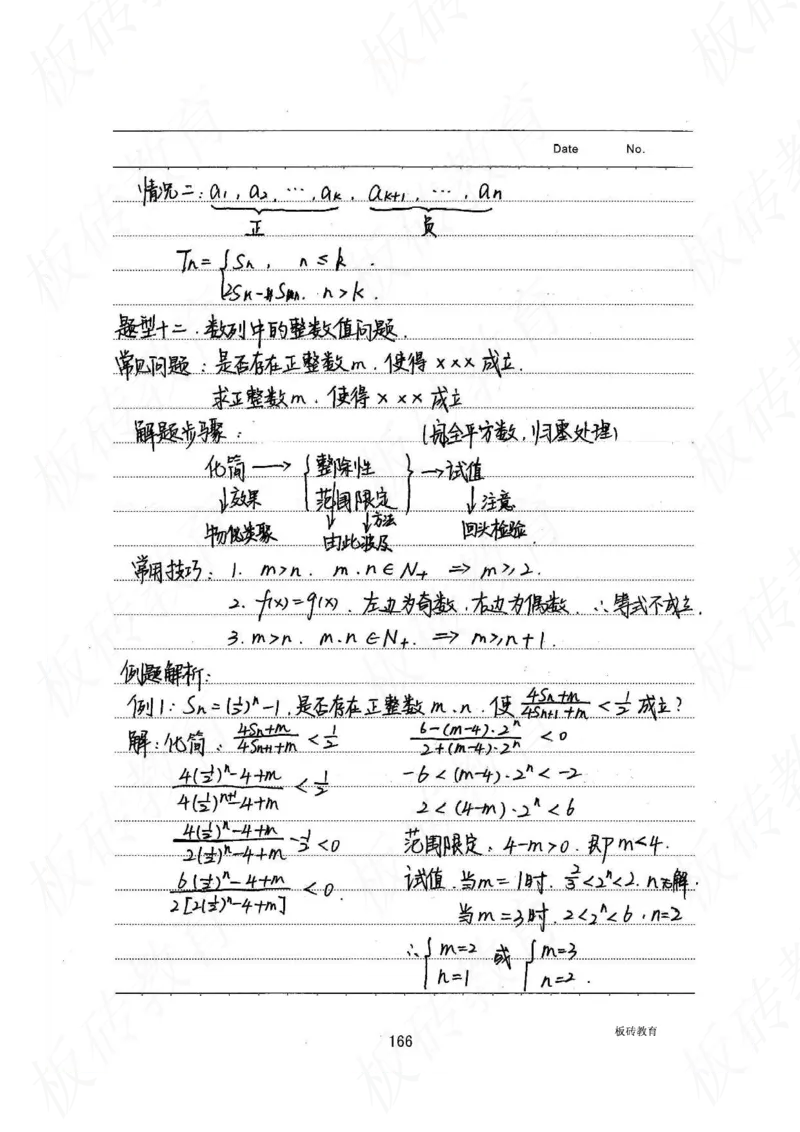 Date No.
情况二: a₁, a₂, …, aₖ, aₖ₊₁, …, aₙ
正 负
Tₙ = { Sₙ, n ≤ k.
2Sₖ - Sₙ, n > k.
题型十二. 数列中的整数值问题.
常见问题: 是否存在正整数 m. 使得 ××× 成立.
求正整数 m. 使得 ××× 成立
解题步骤: (完全平方数, 归零处理)
化简 → { 整除性 } → 试值
↓效果 { 范围限定 } ↓注意
物以类聚 ↓ ↓方法 回头检验
由此波及
常用技巧: 1. m>n. m.n∈N₊ ⇒ m≥2.
2. f(x)=g(x). 左边为奇数, 右边为偶数. ∴等式不成立.
3. m>n. m.n∈N₊. ⇒ m≥n+1.
例题解析:
例1: Sₙ=(1/2)ⁿ-1, 是否存在正整数 m、n. 使 (4Sₙ-m)/(4Sₙ₊₁-m) < 1/2 成立?
解: 化简: (4Sₙ+m)/(4Sₙ₊₁+m) < 1/2
(4(1/2)ⁿ-4+m)/(4(1/2)ⁿ⁺¹-4+m) < 1/2
(4(1/2)ⁿ-4+m)/(2(1/2)ⁿ-4+m) - 1/2 < 0
(6(1/2)ⁿ-4+m)/(2[2(1/2)ⁿ-4+m]) < 0.
(6-(m-4)·2ⁿ)/(2+(m-4)·2ⁿ) < 0
-6 < (m-4)·2ⁿ < -2
2 < (4-m)·2ⁿ < 6
范围限定, 4-m>0. 即 m<4.
试值. 当m=1时. 2/3<2ⁿ<2. n无解.
当m=3时. 2<2ⁿ<6, n=2
∴ { m=2 或 { m=3
n=1 n=2.
166
板砖教育